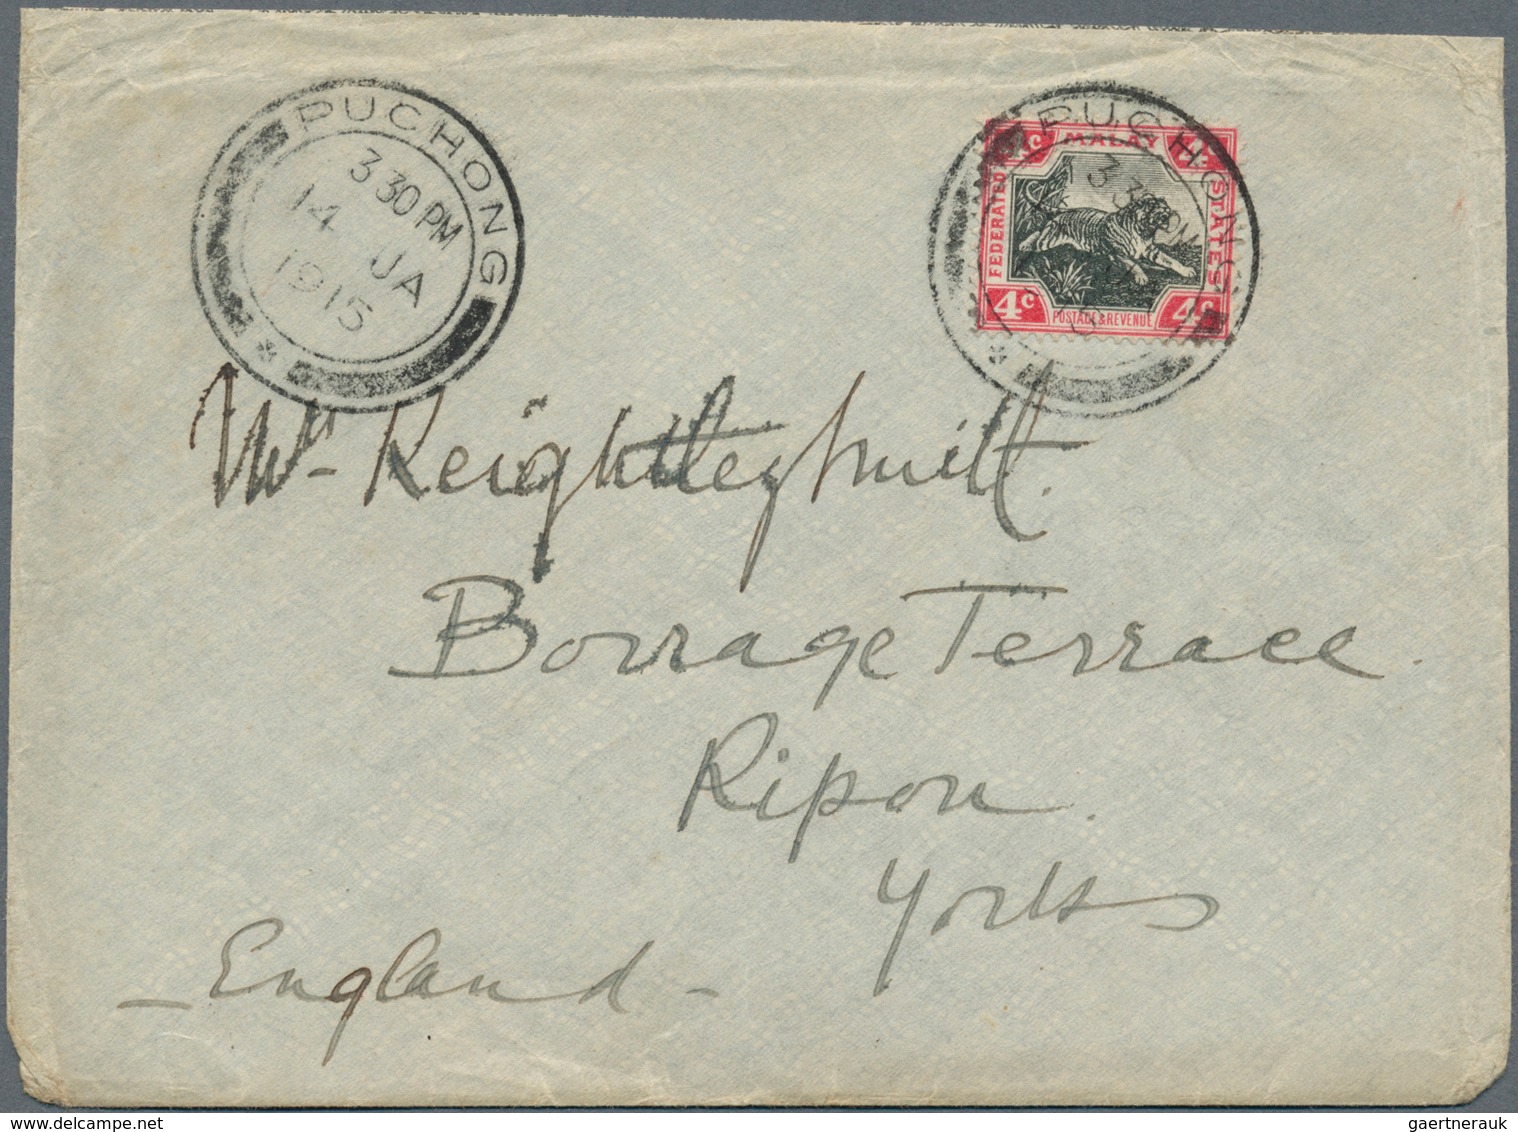 PUCHONG
3 30 PM
14 JA
1915
PUCHONG
3 30 PM
4c MALAY 4c
FEDERATED
STATES
4c POSTAGE & REVENUE 4c
Keightley Smith.
Borrage Terrace.
Ripon.
Yorks
- England -
gaertnerauk